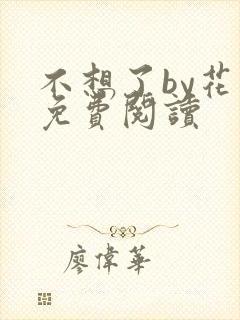 不想了by花
免費閱讀
廖偉華